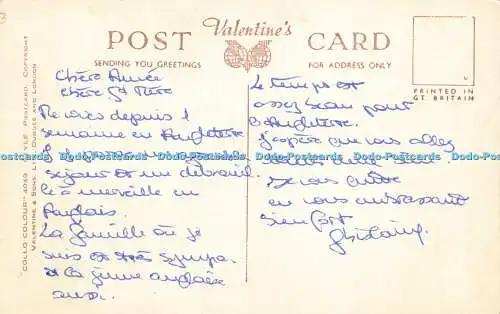 Valentine's
POST CARD
SENDING YOU GREETINGS
FOR ADDRESS ONLY
PRINTED IN
GT. BRITAIN
"COLLO COLOUR" STYLE POSTCARD. COPYRIGHT
VALENTINE & SONS, LTD., DUNDEE AND LONDON
Chère Aimée
Chère Gd Mère
Me voici depuis 1
semaine en Angleterre
séjour et me débrouil
le à merveille en
Anglais.
La famille où je
suis est très sympa
et la jeune anglaise
aussi.
Le temps est
assez beau pour
l'Angleterre.
J'espère que vous allez
Je vous quitte
en vous embrassant
bien fort
Ghislaine
Dodo-Postcards Dodo-Postcards Dodo-Postcards Dodo-Postcards